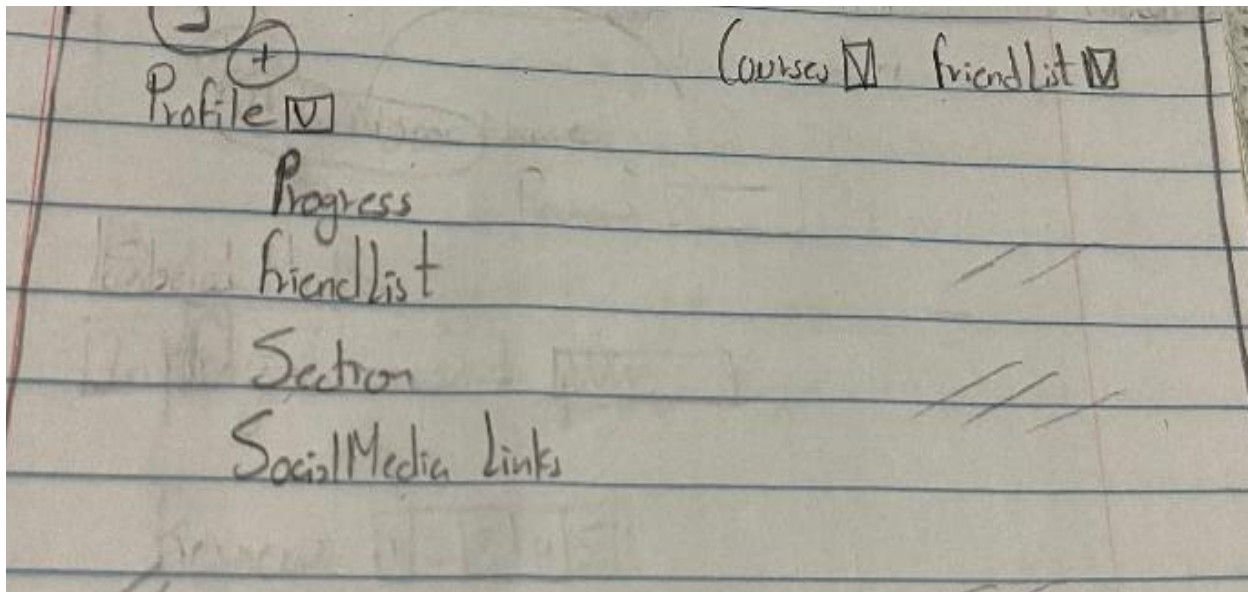 +
Courses V FriendList V
Profile V
Progress
FriendList
Section
SocialMedia Links